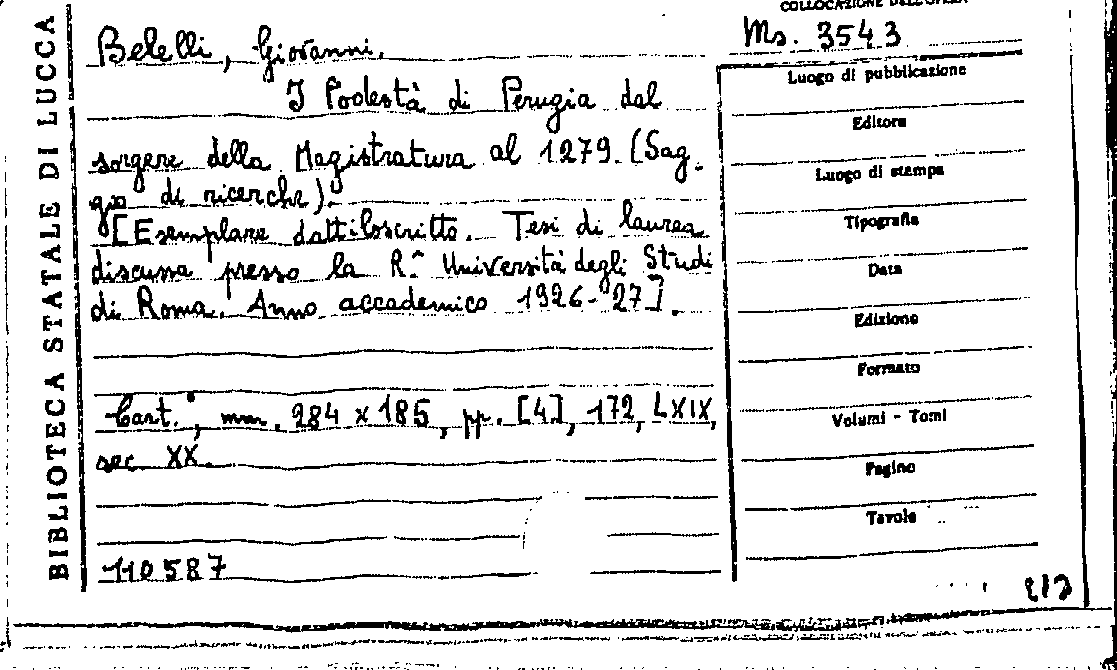 BIBLIOTECA STATALE DI LUCCA
COLLOCAZIONE DELL'OPERA
Ms. 3543
Belelli, Giovanni.
I Podestà di Perugia dal
sorgere della Magistratura al 1279. (Sag-
gio di ricerche).
[Esemplare dattiloscritto. Tesi di laurea
discussa presso la R.ª Università degli Studi
di Roma. Anno accademico 1926-27].
Cart., mm. 284 x 185, pp. [4], 172, LXIX,
sec. XX.
110587
Luogo di pubblicazione
Editore
Luogo di stampa
Tipografia
Data
Edizione
Formato
Volumi - Tomi
Pagine
Tavole